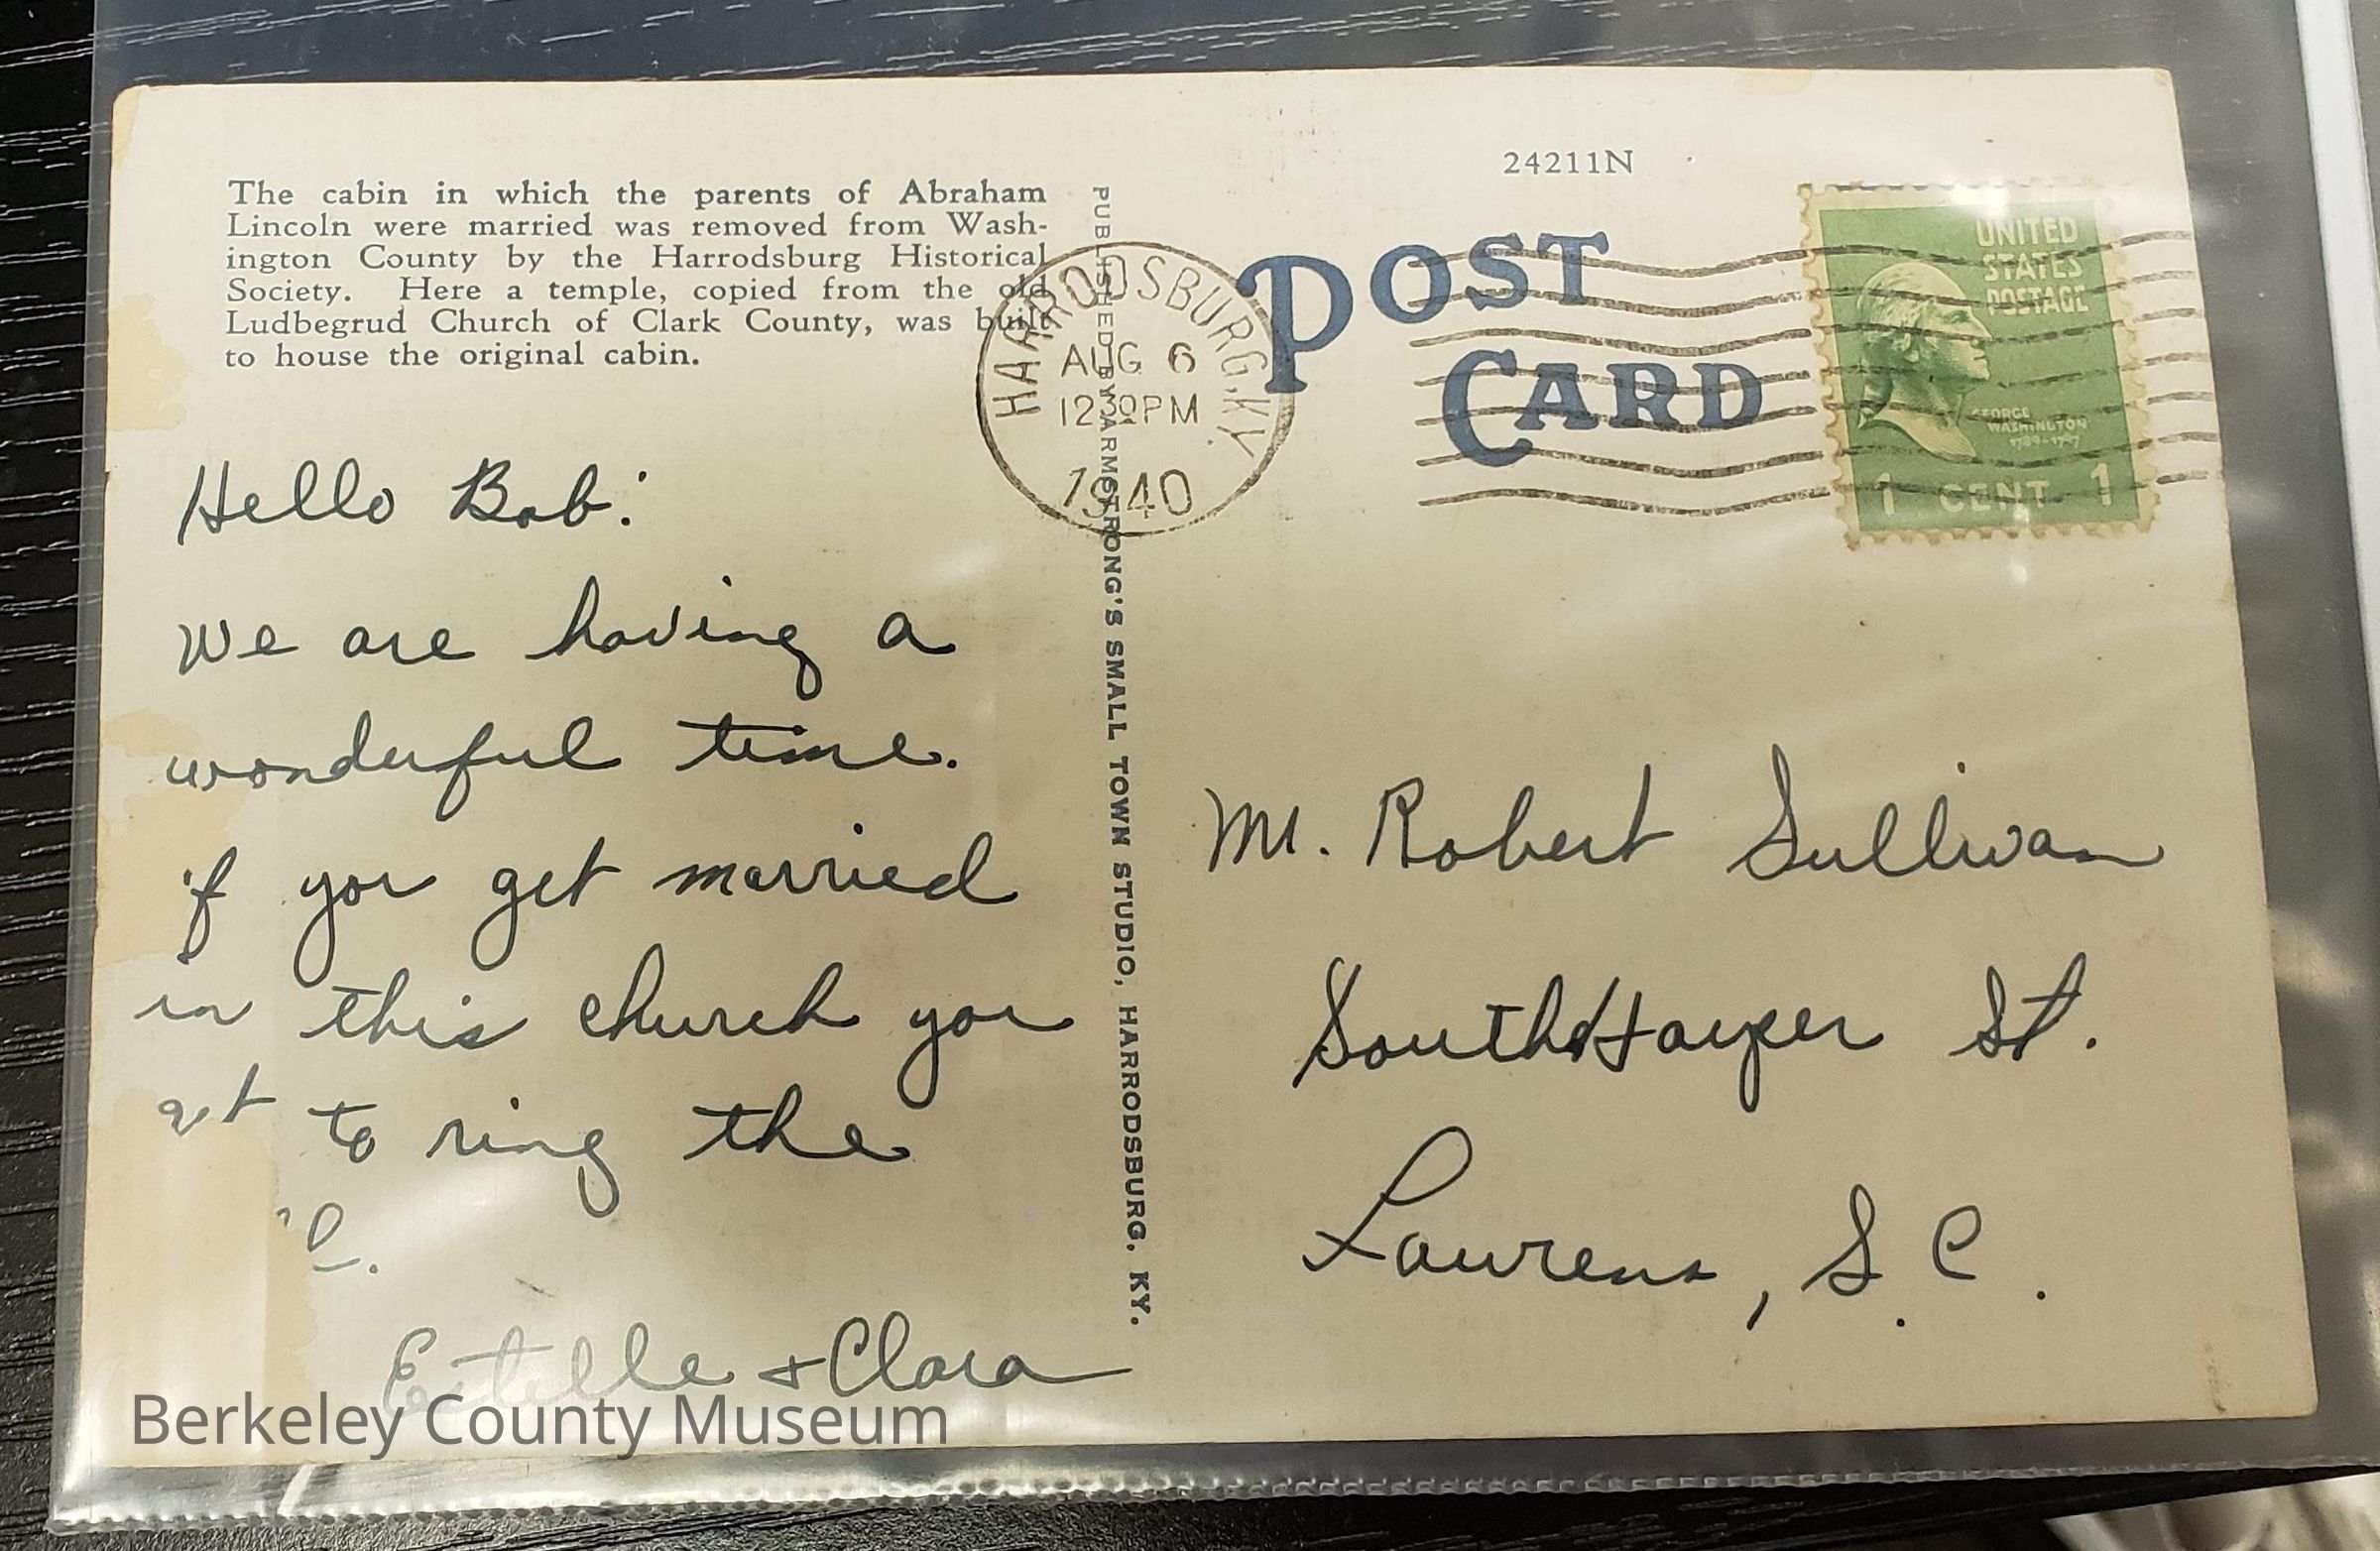 The cabin in which the parents of Abraham
Lincoln were married was removed from Wash-
ington County by the Harrodsburg Historical
Society. Here a temple, copied from the old
Ludbegrud Church of Clark County, was built
to house the original cabin.
Hello Bob:
We are having a
wonderful time.
if you get married
in this church you
get to ring the
Estelle + Clara
PUBLISHED BY ARMSTRONG'S SMALL TOWN STUDIO, HARRODSBURG, KY.
HARRODSBURG, KY.
AUG 6
12 30 PM
1940
24211N
POST
CARD
UNITED
STATES
POSTAGE
GEORGE
WASHINGTON
1789-1797
1 CENT 1
Mr. Robert Sullivan
South Harper St.
Laurens, S.C.
Berkeley County Museum